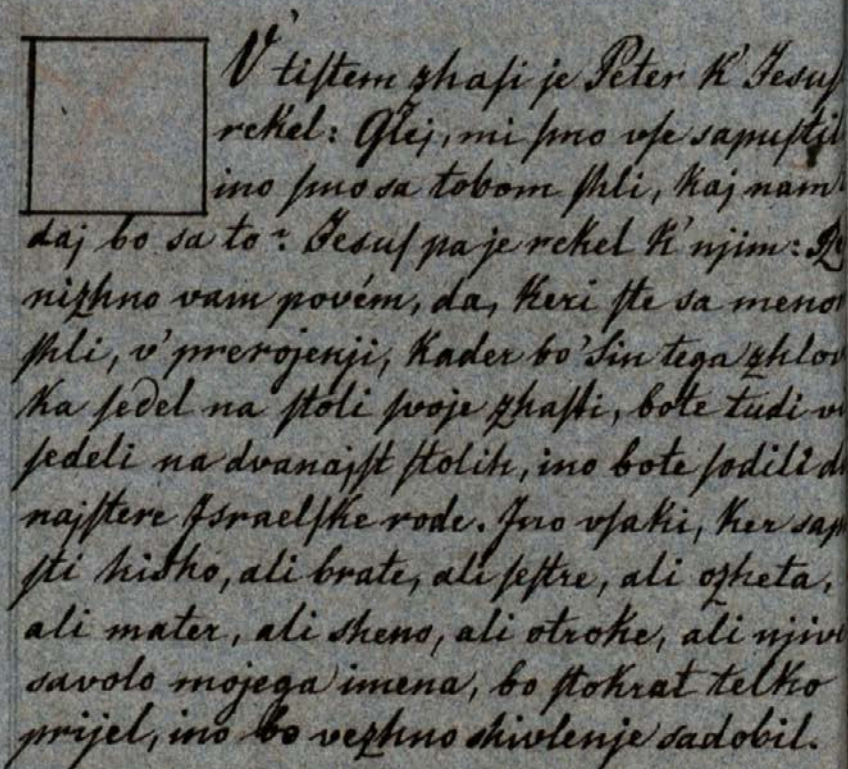 V' tiſtem zhaſi je Peter k' Jesuſ
rekel: Glej, mi ſmo vſe sapuſtil
ino ſmo sa tobom ſhli, kaj nam
daj bo sa to? Jesuſ pa je rekel k' njim:
nizhno vam povém, da, keri ſte sa meno
ſhli, v' prerojenji, kader bo Sin tega zhlov
ka ſedel na ſtoli ſvoje zhaſti, bote tudi v
ſedeli na dvanajſt ſtolih, ino bote ſodili d
najſtere Israelſke rode. Ino vſaki, ker sap
ſti hisho, ali brate, ali ſeſtre, ali ozheta,
ali mater, ali sheno, ali otroke, ali njiv
savolo mojega imena, bo ſtokrat telko
prijel, ino bo vezhno shivlenje sadobil.